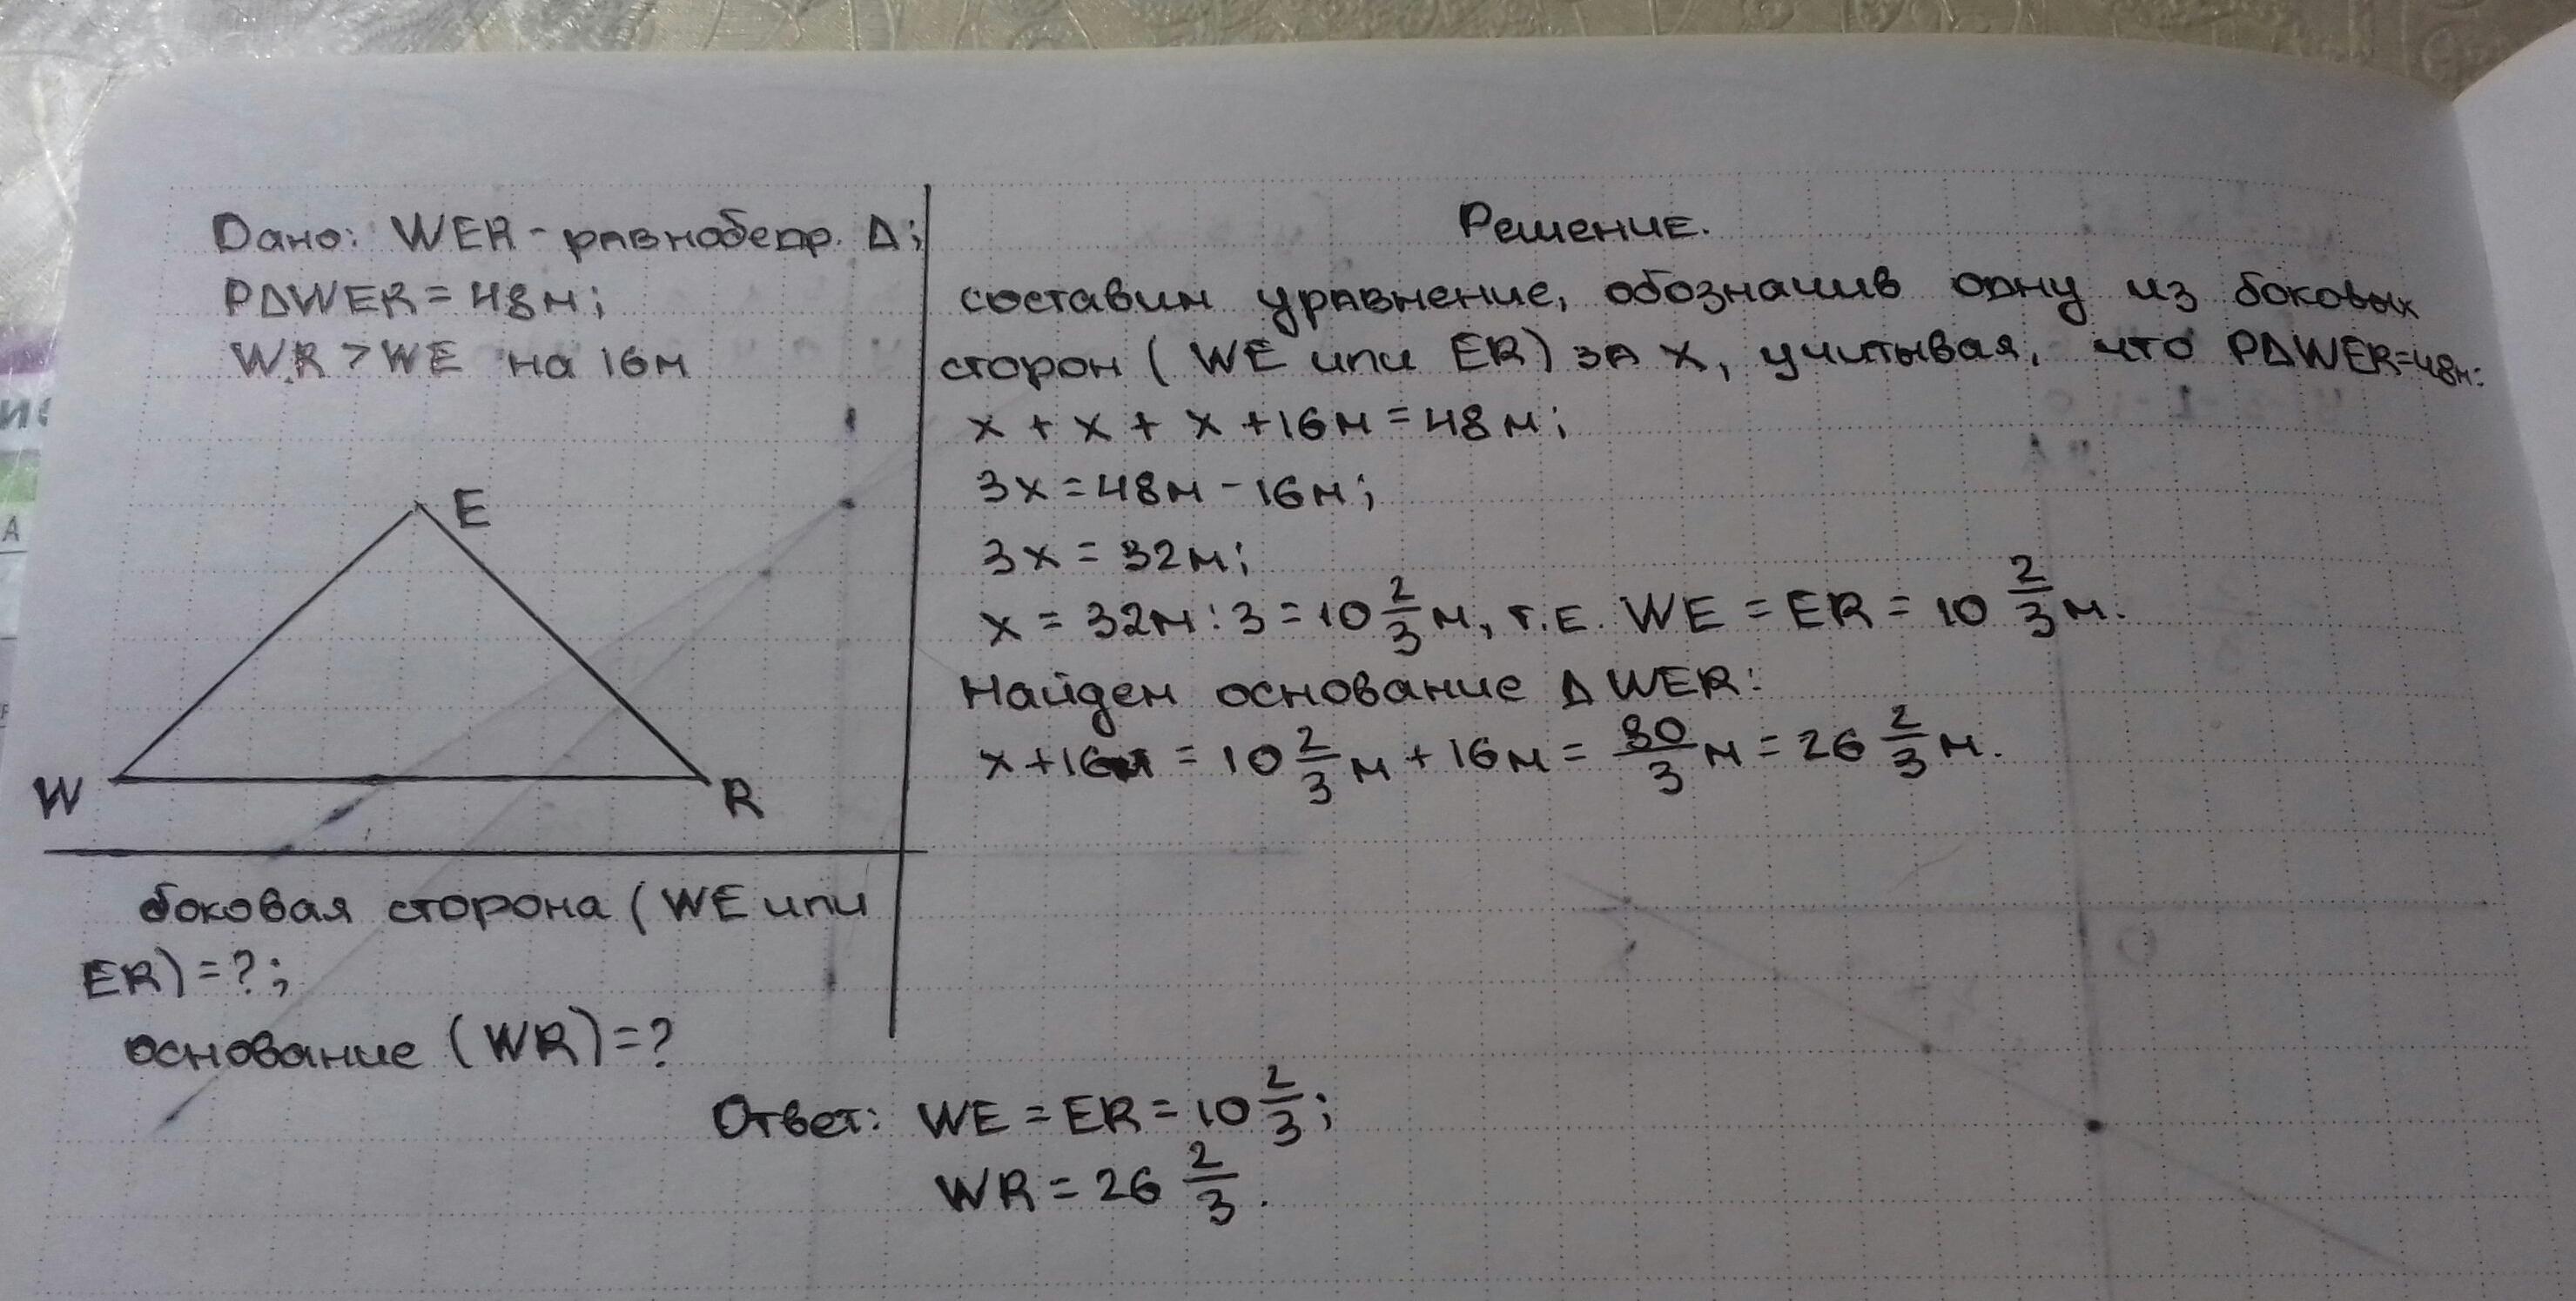 Дано: WER - равнобедр. Δ;
PΔWER = 48м;
WR > WE на 16м
E
W
R
боковая сторона (WE или
ER) = ?;
основание (WR) = ?
Решение.
составим уравнение, обозначив одну из боковых
сторон (WE или ER) за x, учитывая, что PΔWER=48м:
x + x + x + 16м = 48м;
3x = 48м - 16м;
3x = 32м;
x = 32м : 3 = 10 2/3 м, т.е. WE = ER = 10 2/3 м.
Найдем основание Δ WER:
x + 16м = 10 2/3 м + 16м = 80/3 м = 26 2/3 м.
Ответ: WE = ER = 10 2/3;
WR = 26 2/3.